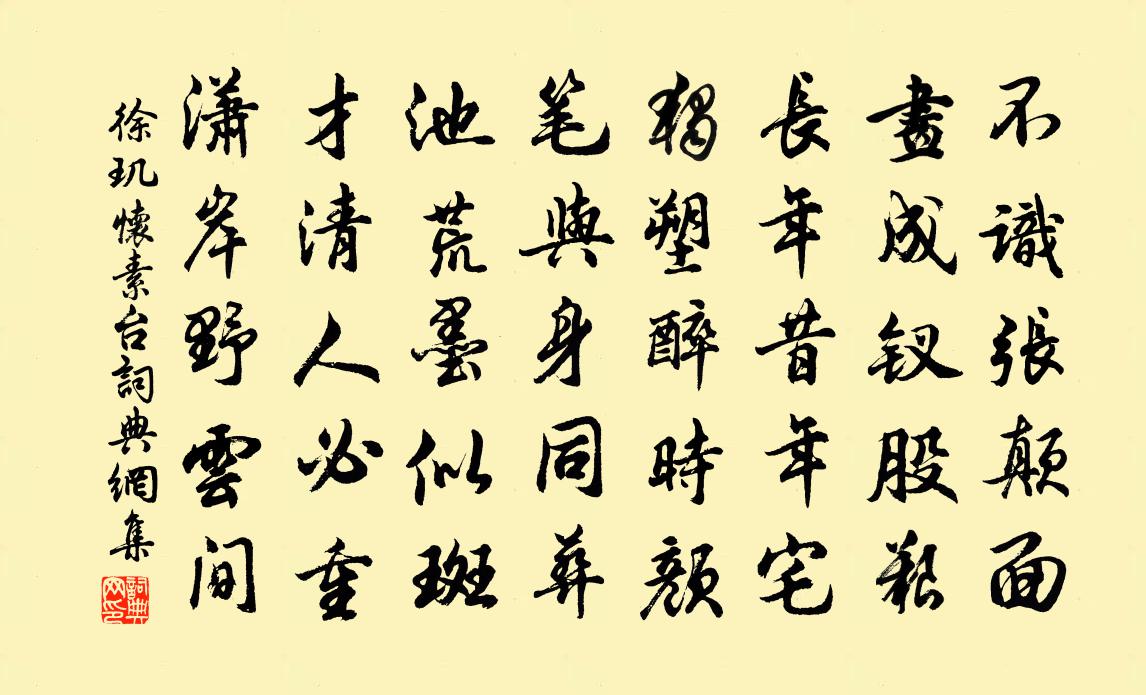 不識張顛面
畫成钗股艱
長年昔年宅
獨塑醉時顏
笔與身同葬
池荒墨似斑
才清人必重
瀟岸野雲間
徐玑懷素台詞典網集
詞典网印